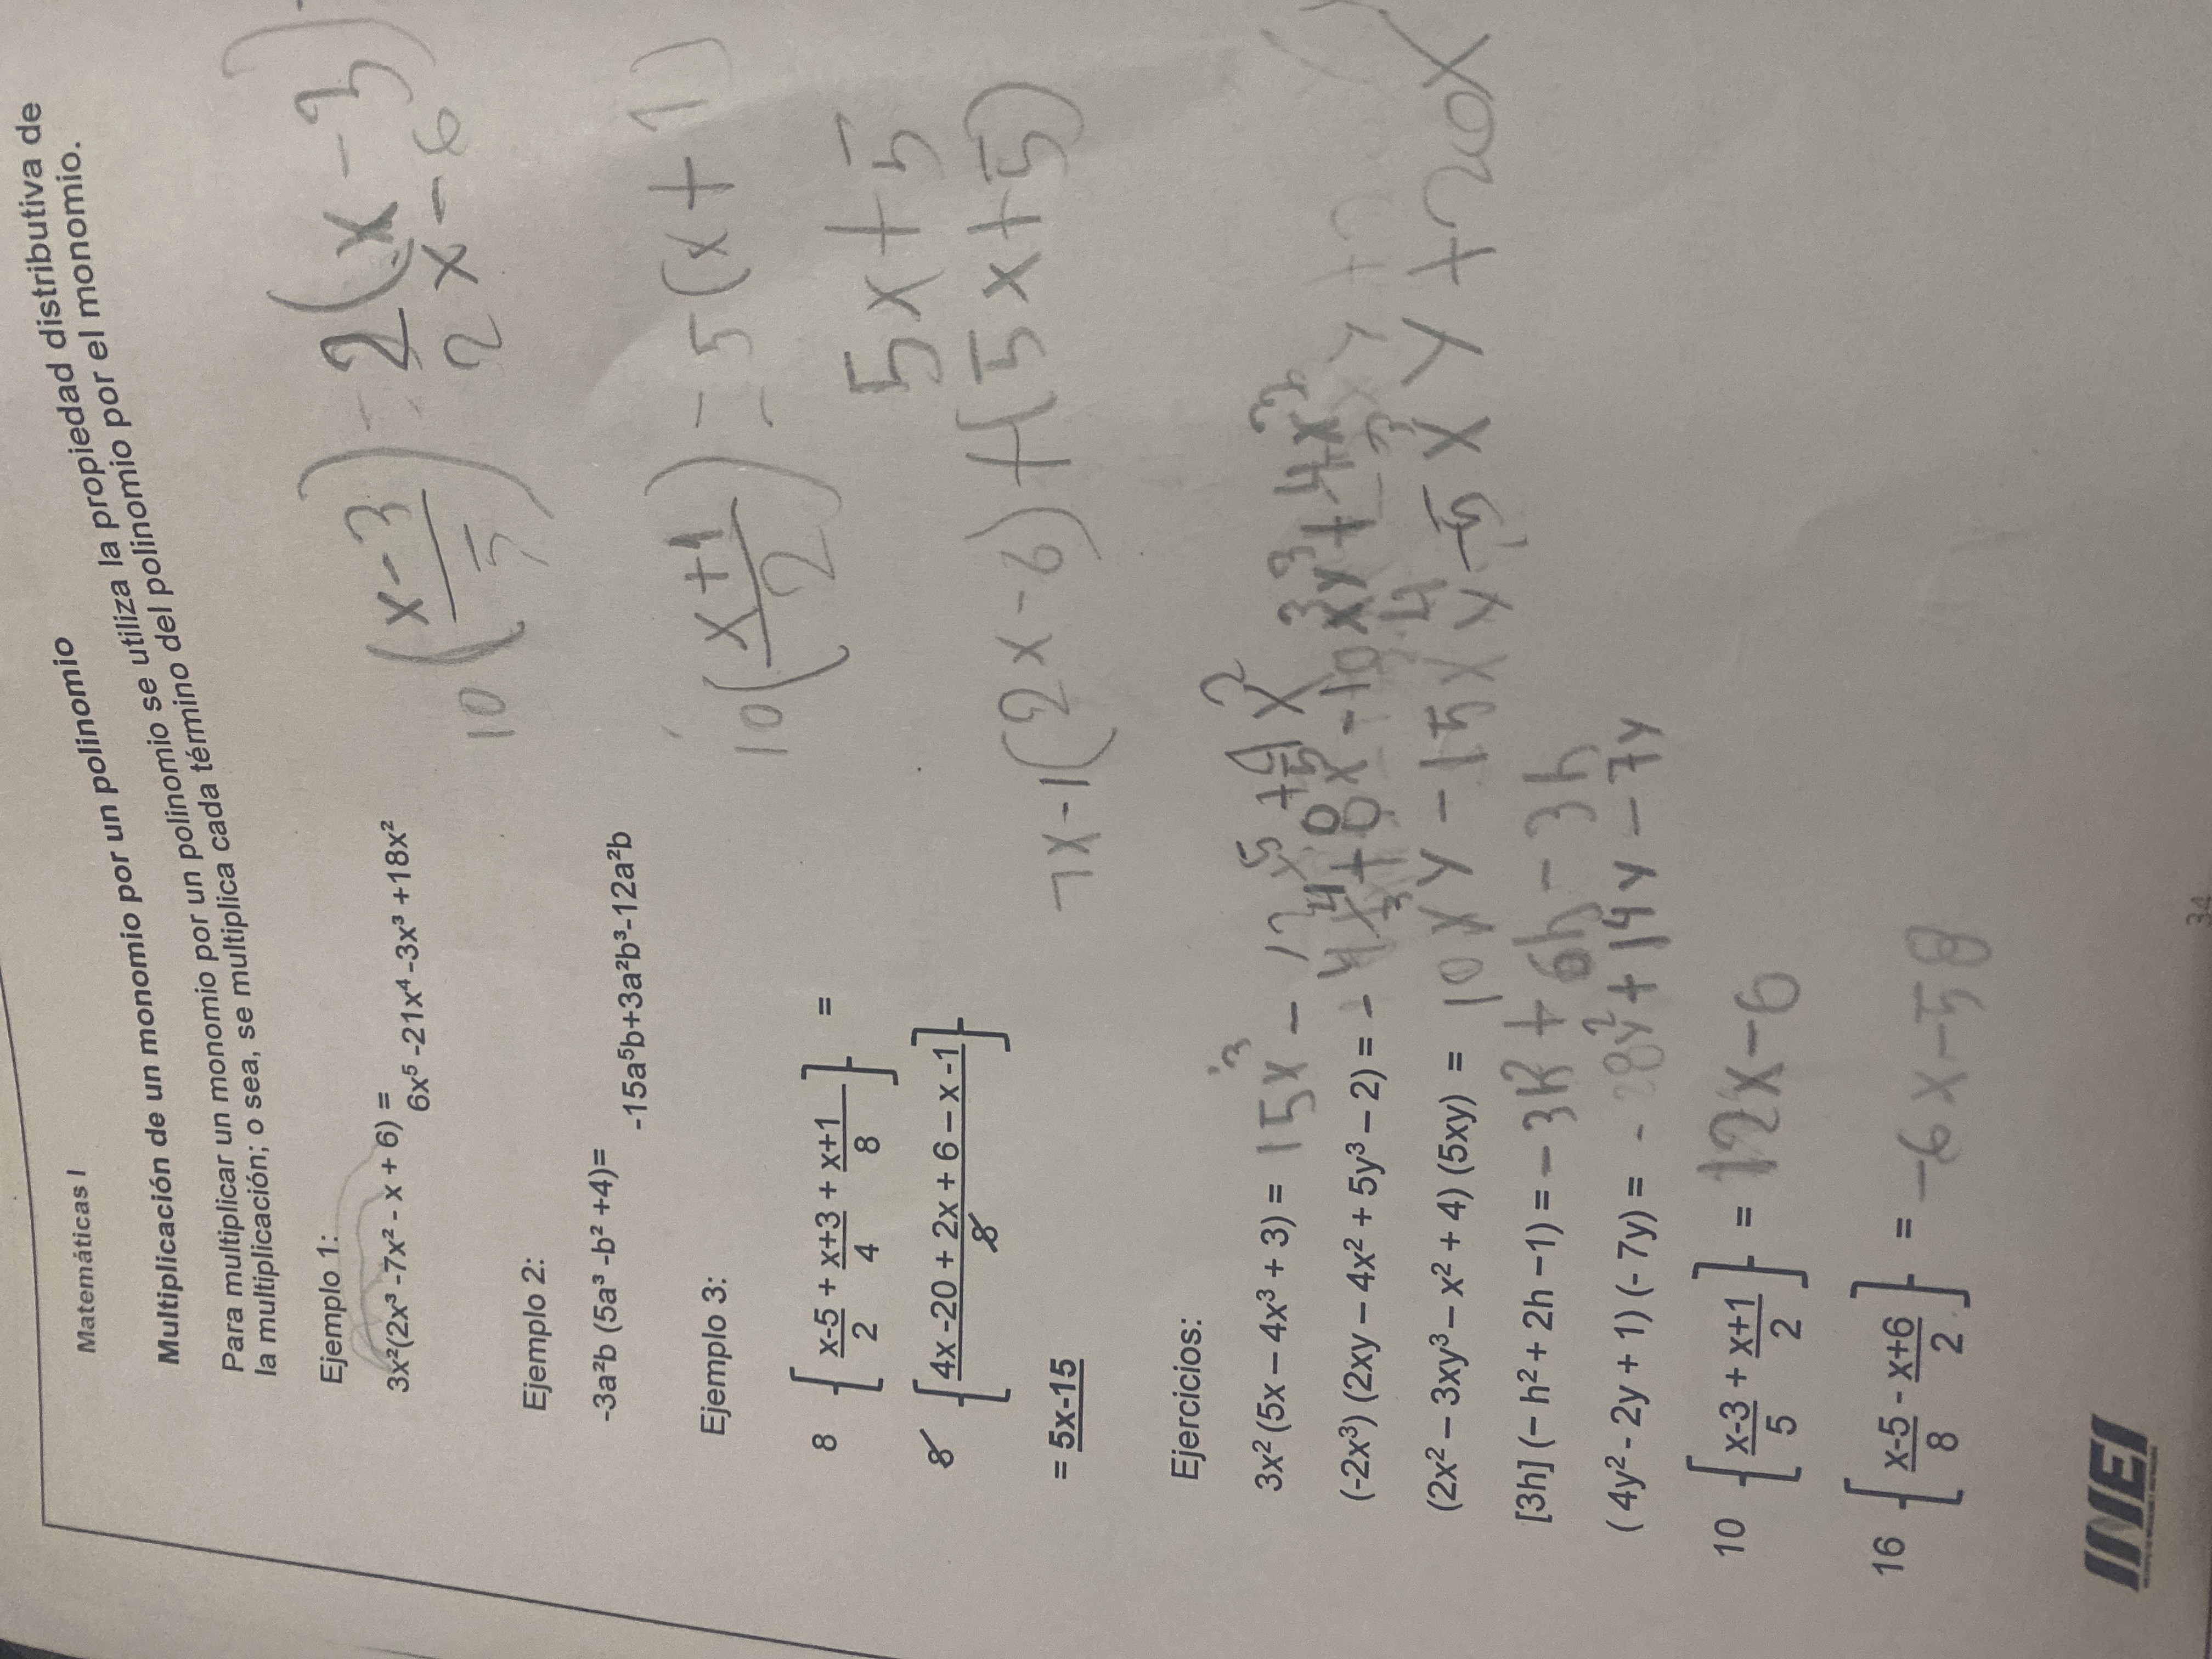 Matemáticas I
Multiplicación de un monomio por un polinomio
Para multiplicar un monomio por un polinomio se utiliza la propiedad distributiva de
la multiplicación; o sea, se multiplica cada término del polinomio por el monomio.
Ejemplo 1:
3x²(2x³ -7x² - x + 6) =
6x⁵ -21x⁴ -3x³ +18x²
10 (x-3/5) = 2(x-3)
2x-6
Ejemplo 2:
-3a²b (5a³ -b² +4)=
-15a⁵b+3a²b³-12a²b
10 (x+1/2) = 5(x+1)
5x+5
Ejemplo 3:
8 [x-5/2 + x+3/4 + x+1/8] =
8 [4x -20 + 2x + 6 – x -1/8]
= 5x-15
7x-1 (2x-6)+(5x+5)
Ejercicios:
3x² (5x – 4x³ + 3) = 15x³ - 12x⁵ +
(-2x³) (2xy – 4x² + 5y³ – 2) = -4x⁴
(2x² – 3xy³ – x² + 4) (5xy) = 10xy - 15x y⁴ - 5x y + 20x
[3h] (– h² + 2h –1) = -3h² + 6h - 3h
( 4y² - 2y + 1) (- 7y) = -28y² + 14y - 7y
10 [x-3/5 + x+1/2] = 12x-6
16 [x-5/8 - x+6/2] = -6x-58
INEI
34